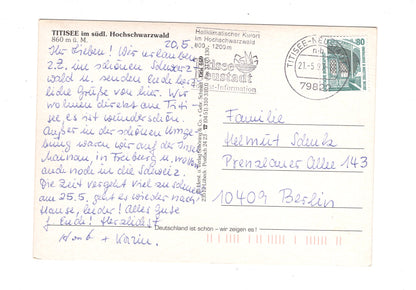 TITISEE im südl. Hochschwarzwald
860 m ü. M.
20.5.
Ihr Lieben! Wir urlauben
z.Z. im schönen Schwarz-
wald u. senden Euch herz-
liche Grüße von hier. Wir
wohnen direkt am Titi-
see, es ist wunderschön.
Außer in der schönen Umge-
bung waren wir auf der Insel
Mainau, in Triberg u. wollen
auch noch in die Schweiz.
Die Zeit vergeht viel zu schnell
am 25.5. geht es wieder nach
Hause, leider! Alles Gute
f. Euch! Herzlichst
+ Karin.
Heilklimatischer Kurort
im Hochschwarzwald
800 - 1200m
Titisee
Neustadt
-Information
TITISEE-NEU
21.-5.9
7982
80
Familie
Helmut Schulz
Prenzlauer Allee 143
10409 Berlin
Deutschland ist schön – wir zeigen es!